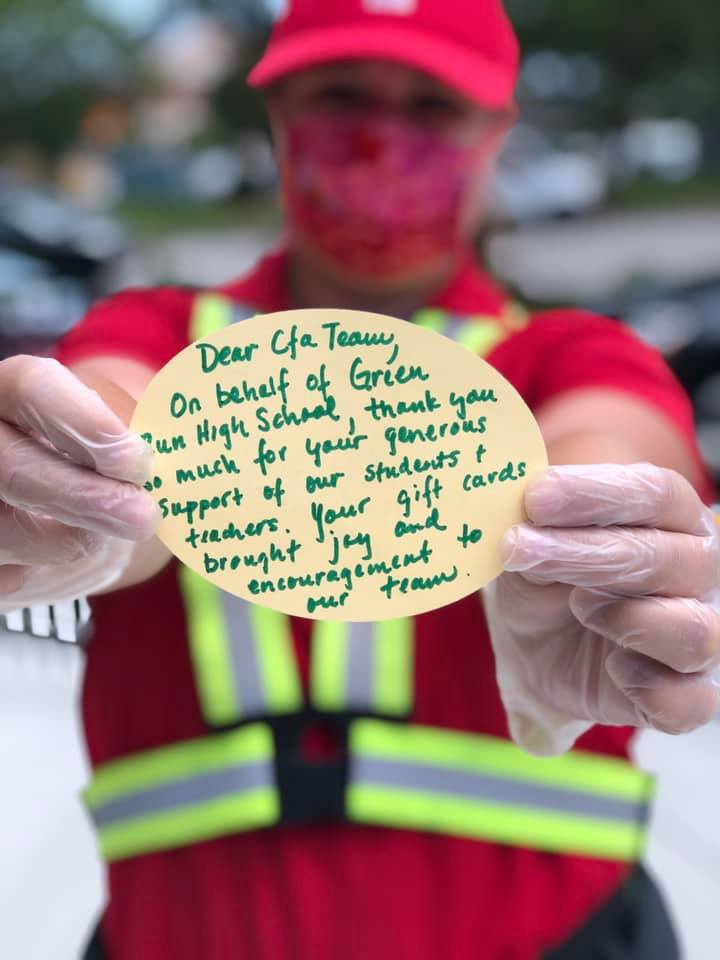 Dear Cfa Team,
On behalf of Green
Run High School, thank you
so much for your generous
support of our students +
teachers. Your gift cards
brought joy and
encouragement to
our team.